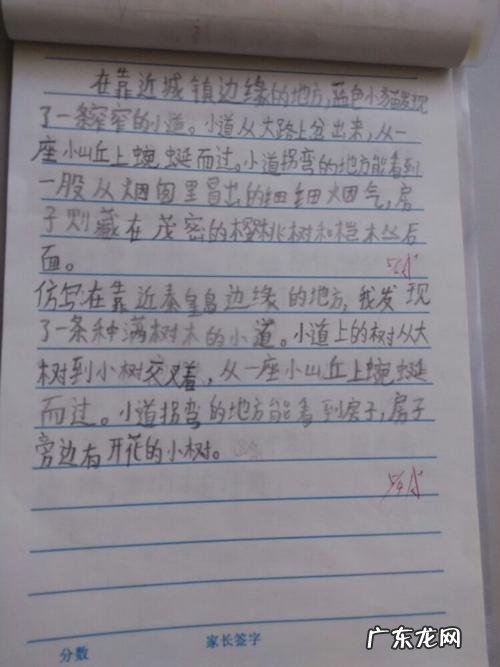 在靠近城镇边缘的地方,蓝色小猫发现
了一条窄窄的小道。小道从大路上岔出来,从一
座小山丘上蜿蜒而过。小道拐弯的地方能看到
一股从烟囱里冒出的细细烟气,房
子则藏在茂密的樱桃树和桤木丛后
面。
仿写在靠近秦皇岛边缘的地方,我发现
了一条种满树木的小道。小道上的树从大
树到小树交叉着,从一座小山丘上蜿蜒
而过。小道拐弯的地方能看到房子,房子
旁边有开花的小树。
分数
家长签字
广东龙网